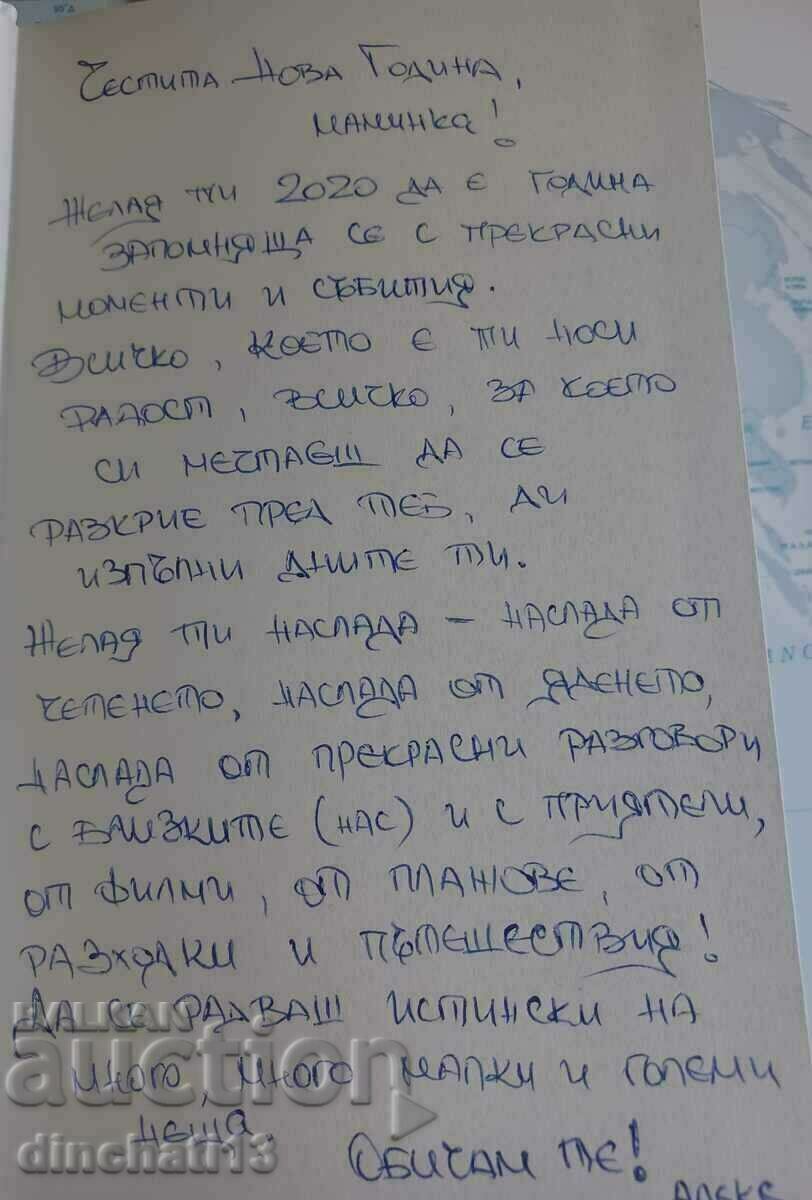 Честита Нова Година,
маминка!
Желая ти 2020 да е година
запомняща се с прекрасни
моменти и събития.
Всичко, което е ти носи
радост, всичко, за което
си мечтаеш да се
разкрие пред теб,
изпълни дните ти.
Желая ти наслада – наслада от
четенето, наслада от яденето,
наслада от прекрасни разговори
с близките (нас) и с приятели,
от филми, от плажове, от
разходки и пътешествия!
Да се радваш истински на
много, много малки и големи
неща.
Обичам те!
Алекс
BALKAN
auction
dinchati13